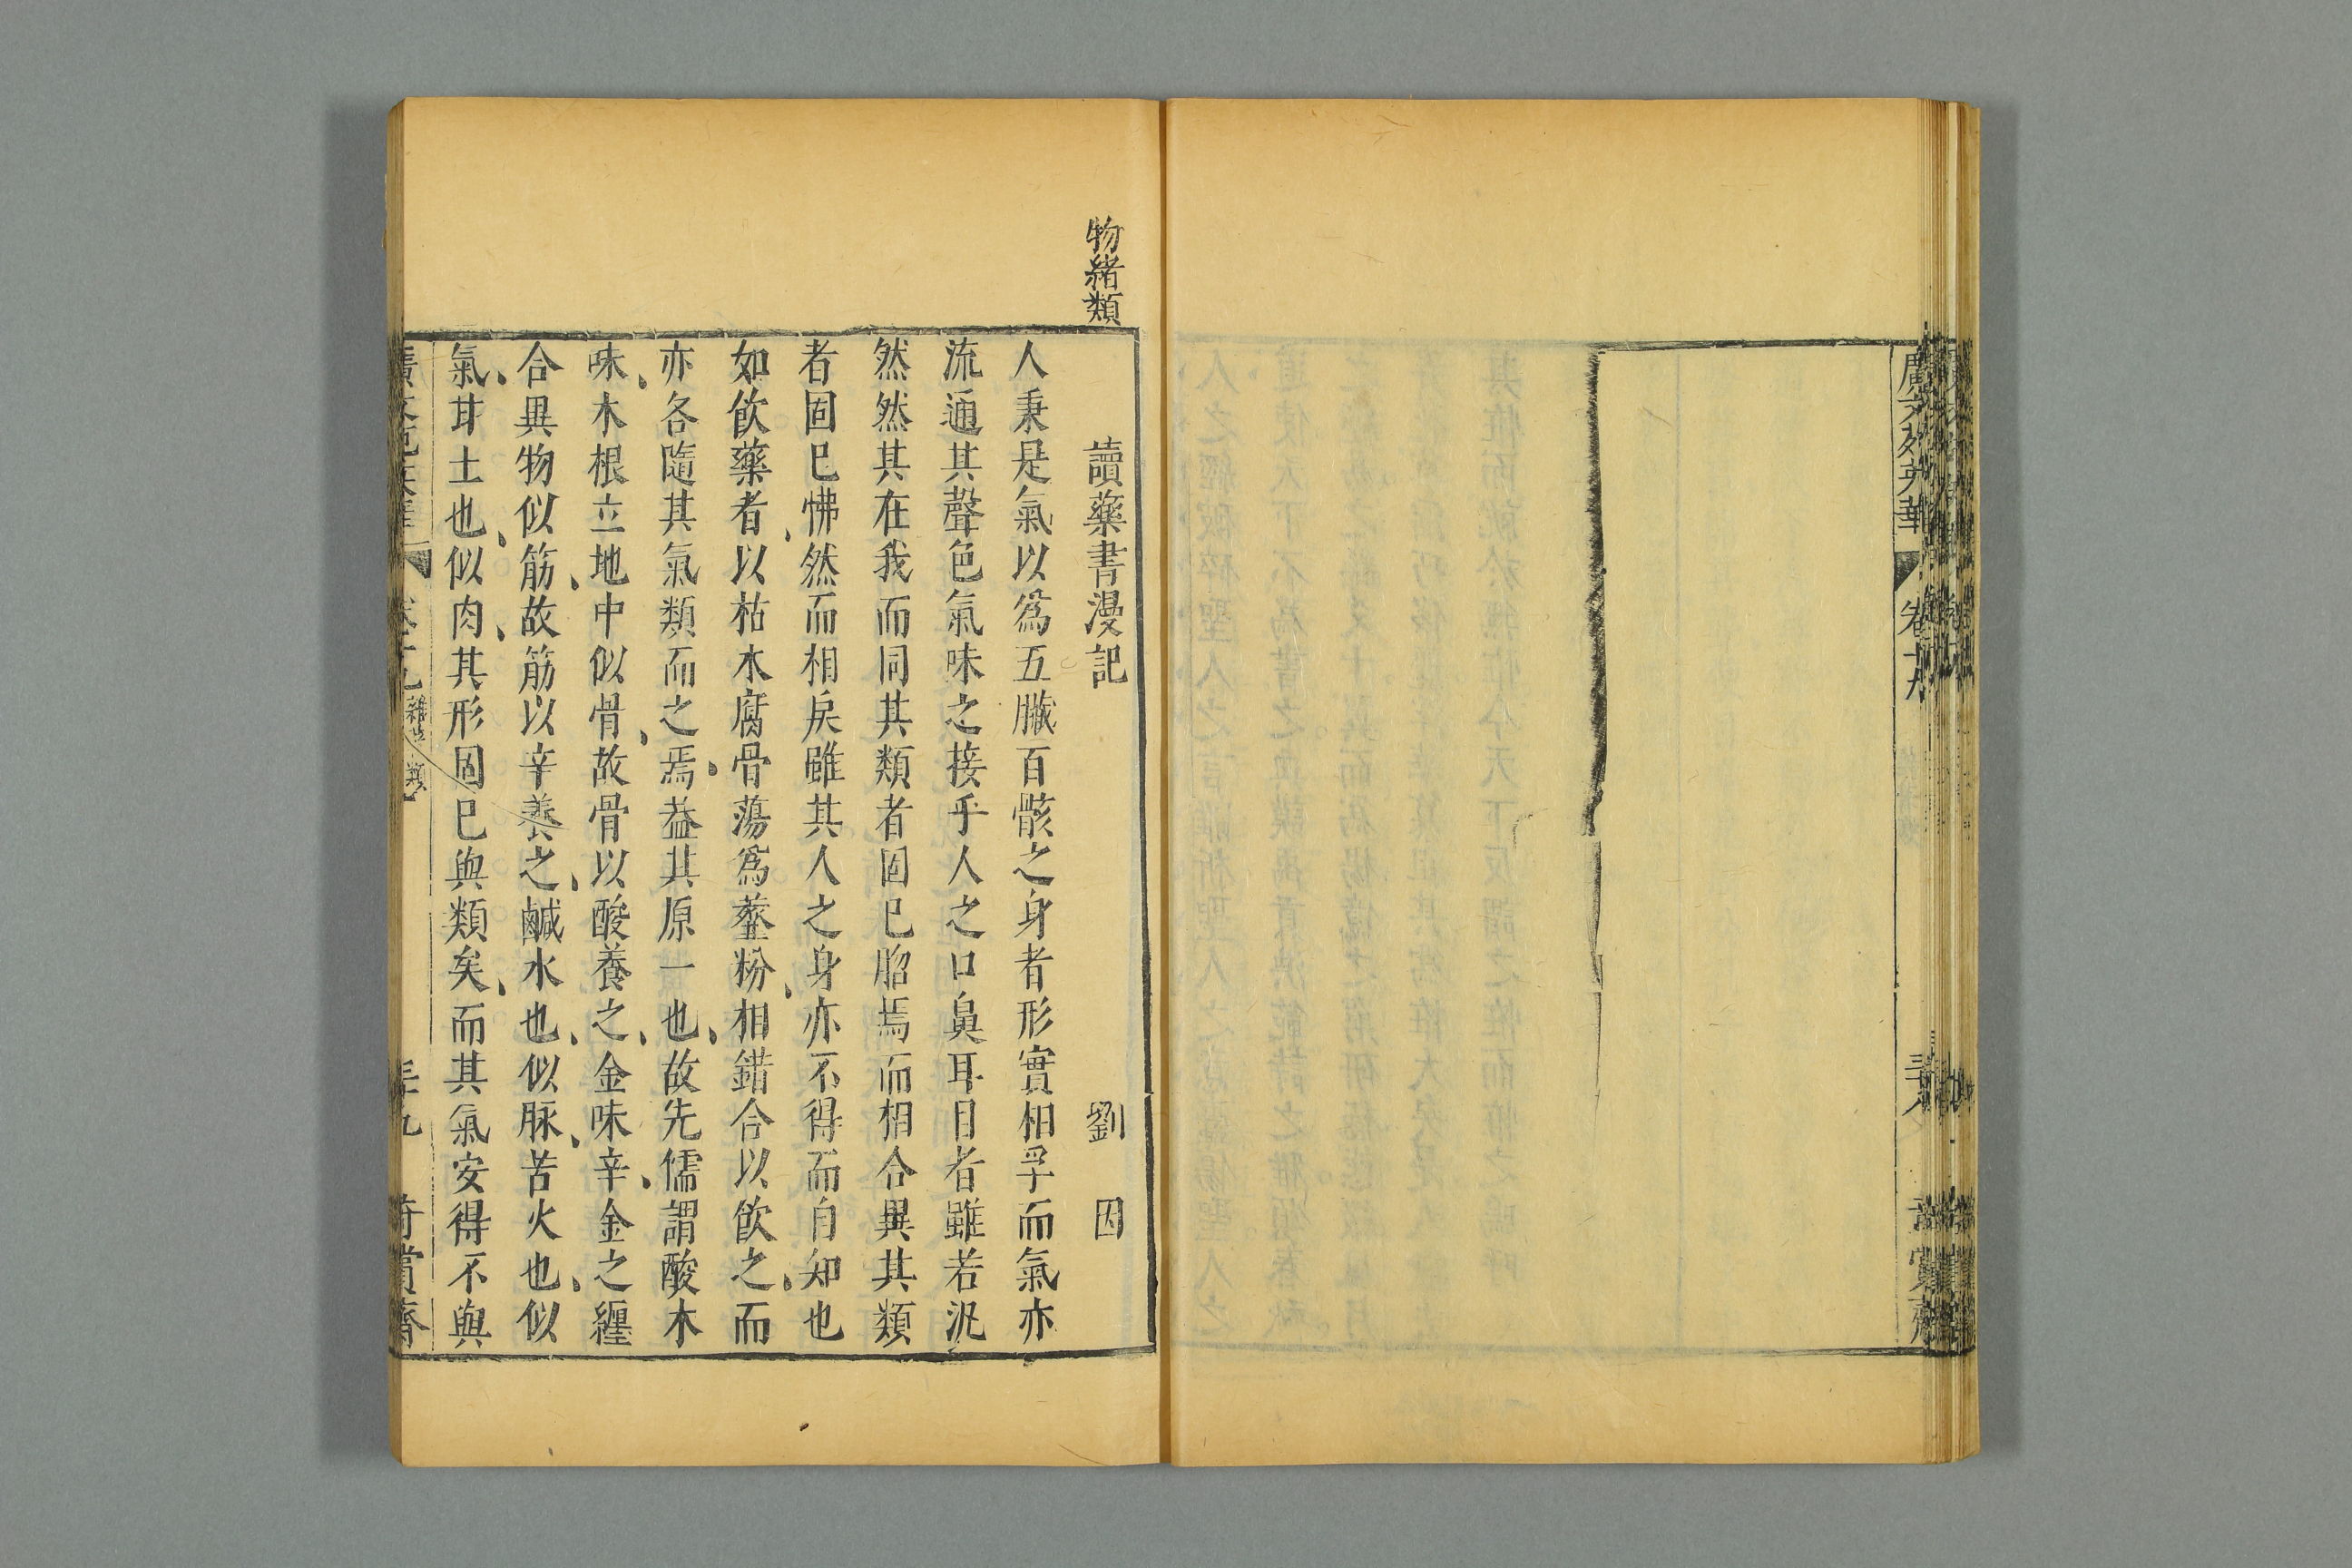 廣文苑英華
卷十九
三十八
賞齋
物緒類
讀藥書漫記 劉因
人秉是氣以爲五臟百骸之身者形實相孚而氣亦
流通其聲色氣味之接乎人之口鼻耳目者雖若汎
然然其在我而同其類者固已脗焉而相合異其類
者固已怫然而相戾雖其人之身亦不得而自知也
如飲藥者以枯木腐骨蕩爲虀粉相錯合以飲之而
亦各隨其氣類而之焉葢其原一也故先儒謂酸木
味木根立地中似骨故骨以酸養之金味辛金之纏
合異物似筋故筋以辛養之鹹水也似脉苦火也似
氣甘土也似肉其形固已與類矣而其氣安得不與
廣文苑英華 卷十九 雜 類 三十九 奇賞齋